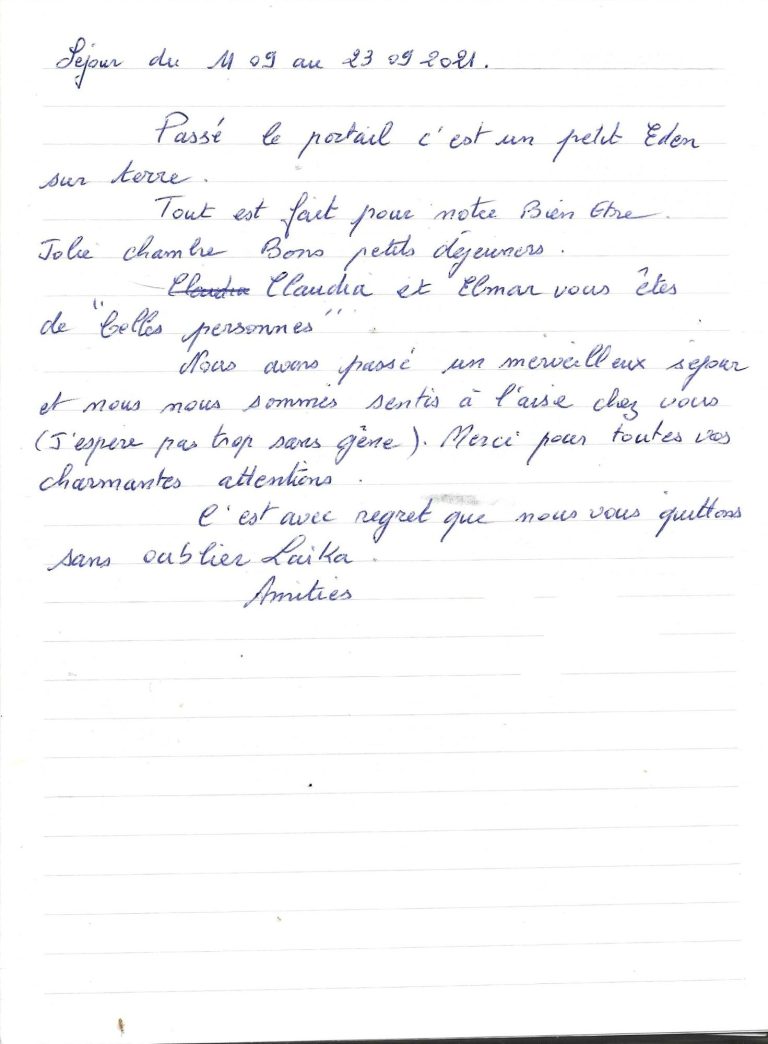 Séjour du 11 09 au 23 09 2021.
Passé le portail c'est un petit Eden
sur terre.
Tout est fait pour notre Bien Etre.
Jolie chambre Bons petits déjeuners.
Claudia Claudia et Elmar vous êtes
de "belles personnes".
Nous avons passé un merveilleux séjour
et nous nous sommes sentis à l'aise chez vous
(J'espère pas trop sans gêne). Merci pour toutes vos
charmantes attentions.
C'est avec regret que nous vous quittons
sans oublier Laika.
Amitiés